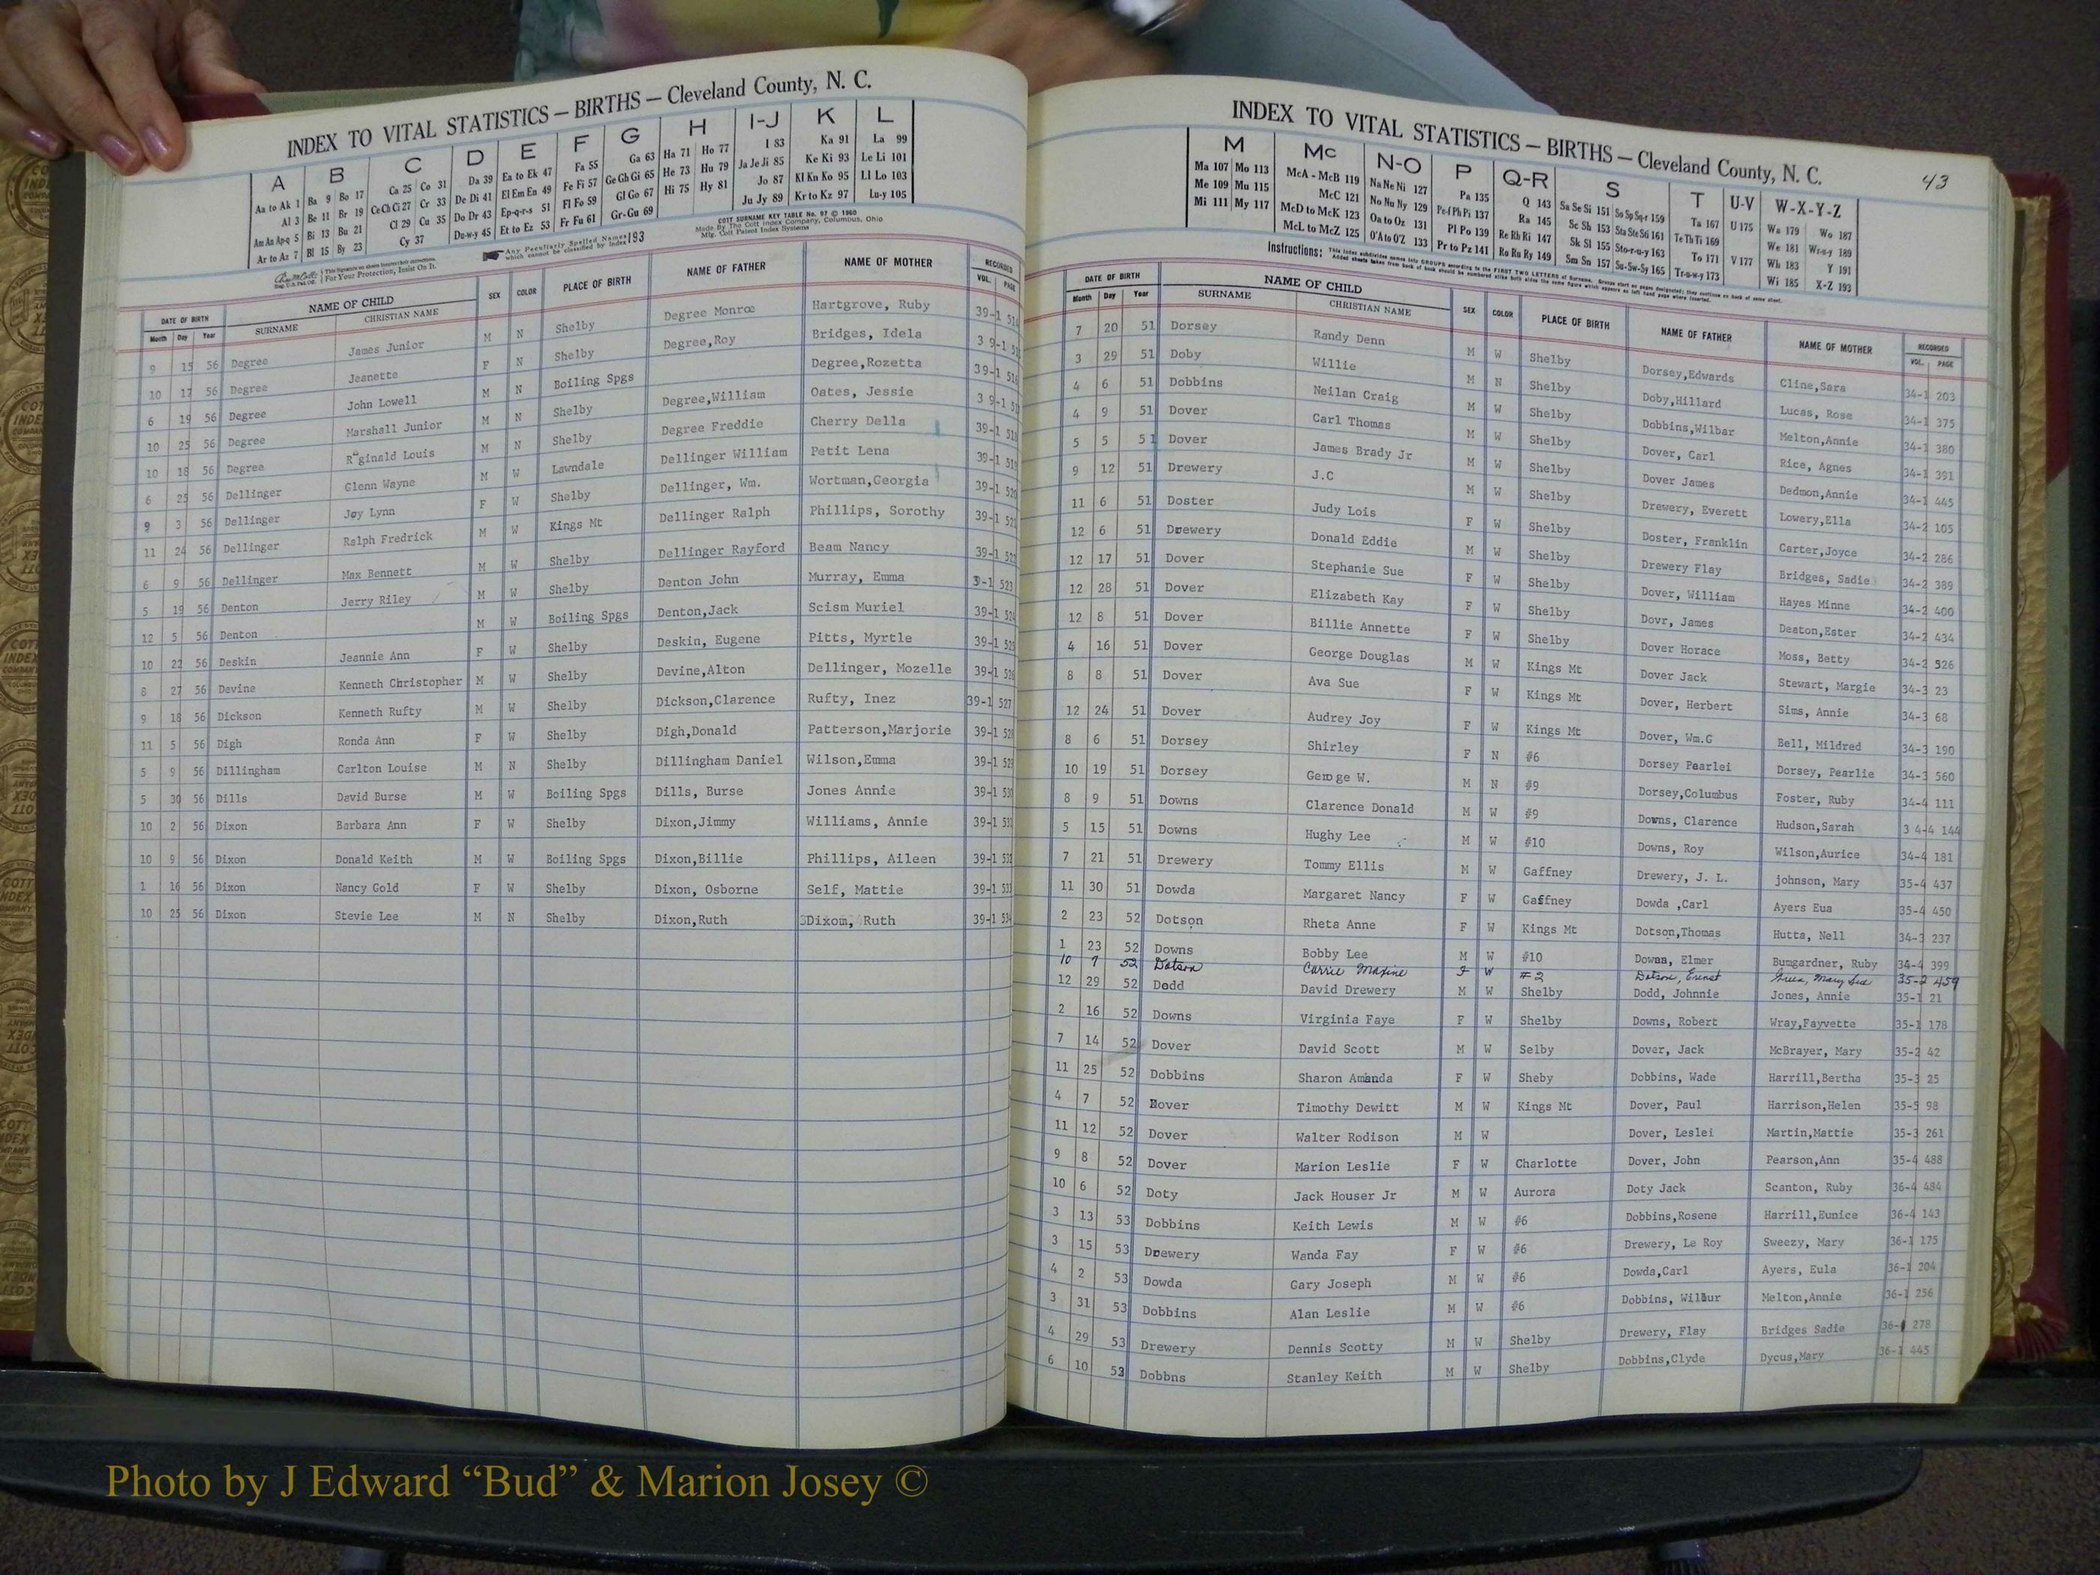 INDEX TO VITAL STATISTICS — BIRTHS — Cleveland County, N. C.
A B C D E F G H I-J K L
Aa to Ak 1 Ba 9 Bo 17 Ca 25 Co 31 Da 39 Ea to Ek 47 Fa 55 Ga 63 Ha 71 Ho 77 I 83 Ka 91 La 99
Al 3 Be 11 Br 19 Ce Ch Ci 27 Cr 33 De Di 41 El Em En 49 Fe Fi 57 Ge Gh Gi 65 He 73 Hu 79 Ja Je Ji 85 Ke Ki 93 Le Li 101
Am An Ap-q 5 Bi 13 Bu 21 Cl 29 Cu 35 Do Dr 43 Ep-q-r-s 51 Fl Fo 59 Gl Go 67 Hi 75 Hy 81 Jo 87 Kl Kn Ko 95 Ll Lo 103
Ar to Az 7 Bl 15 By 23 Cy 37 Du-w-y 45 Et to Ez 53 Fr Fu 61 Gr-Gu 69 Ju Jy 89 Kr to Kz 97 Lu-y 105
Any Peculiarly Spelled Names which cannot be classified by Index 193
COTT SURNAME KEY TABLE No. 97 © 1960
Made By The Cott Index Company, Columbus, Ohio
Mfg. Cott Patent Index Systems
For Your Protection, Insist On It.
DATE OF BIRTH NAME OF CHILD SEX COLOR PLACE OF BIRTH NAME OF FATHER NAME OF MOTHER RECORDED
Month Day Year SURNAME CHRISTIAN NAME VOL. PAGE
9 15 56 Degree James Junior M N Shelby Degree Monroe Hartgrove, Ruby 39-1 514
10 17 56 Degree Jeanette F N Shelby Degree,Roy Bridges, Idela 3 9-1
6 19 56 Degree John Lowell M N Boiling Spgs Degree,Rozetta 39-1 516
10 25 56 Degree Marshall Junior M N Shelby Degree,William Oates, Jessie 3 9-1
10 18 56 Degree R ginald Louis M N Shelby Degree Freddie Cherry Della 39-1 518
6 25 56 Dellinger Glenn Wayne M W Lawndale Dellinger William Petit Lena 39-1 519
9 3 56 Dellinger Joy Lynn F W Shelby Dellinger, Wm. Wortman,Georgia 39-1 520
11 24 56 Dellinger Ralph Fredrick M W Kings Mt Dellinger Ralph Phillips, Sorothy 39-1 521
6 9 56 Dellinger Max Bennett M W Shelby Dellinger Rayford Beam Nancy 39-1 522
5 19 56 Denton Jerry Riley M W Shelby Denton John Murray, Emma 39-1 523
12 5 56 Denton M W Boiling Spgs Denton,Jack Scism Muriel 39-1 524
10 22 56 Deskin Jeannie Ann F W Shelby Deskin, Eugene Pitts, Myrtle 39-1 525
8 27 56 Devine Kenneth Christopher M W Shelby Devine,Alton Dellinger, Mozelle 39-1 526
9 18 56 Dickson Kenneth Rufty M W Shelby Dickson,Clarence Rufty, Inez 39-1 527
11 5 56 Digh Ronda Ann F W Shelby Digh,Donald Patterson,Marjorie 39-1 528
5 9 56 Dillingham Carlton Louise M N Shelby Dillingham Daniel Wilson,Emma 39-1 529
5 30 56 Dills David Burse M W Boiling Spgs Dills, Burse Jones Annie 39-1 530
10 2 56 Dixon Barbara Ann F W Shelby Dixon,Jimmy Williams, Annie 39-1 531
10 9 56 Dixon Donald Keith M W Boiling Spgs Dixon,Billie Phillips, Aileen 39-1 532
1 16 56 Dixon Nancy Gold F W Shelby Dixon, Osborne Self, Mattie 39-1 533
10 25 56 Dixon Stevie Lee M N Shelby Dixon,Ruth Dixom, Ruth 39-1 534
INDEX TO VITAL STATISTICS — BIRTHS — Cleveland County, N. C.
43
M Mc N-O P Q-R S T U-V W-X-Y-Z
Ma 107 Mo 113 McA - McB 119 Na Ne Ni 127 Pa 135 Q 143 Sa Se Si 151 So Sp Sq-r 159 Ta 167 U 175 Wa 179 Wo 187
Me 109 Mu 115 McC 121 No Nu Ny 129 Pe-f Ph Pi 137 Ra 145 Sc Sh 153 Sta Ste Sti 161 Te Th Ti 169 We 181 Wr-u-y 189
Mi 111 My 117 McD to McK 123 Oa to Oz 131 Pl Po 139 Re Rh Ri 147 Sk Sl 155 Sto-r-u-y 163 To 171 V 177 Wh 183 Y 191
McL to McZ 125 O'A to O'Z 133 Pr to Pz 141 Ro Ru Ry 149 Sm Sn 157 Su-Sw-Sy 165 Tr-u-w-y 173 Wi 185 X-Z 193
Instructions: This Index subdivides names into GROUPS according to the FIRST TWO LETTERS of Surname. Groups start on pages designated; they continue on back of same sheet.
Added sheets taken from back of book should be numbered alike both sides the same figure which appears on left hand page where inserted.
DATE OF BIRTH NAME OF CHILD SEX COLOR PLACE OF BIRTH NAME OF FATHER NAME OF MOTHER RECORDED
Month Day Year SURNAME CHRISTIAN NAME VOL. PAGE
7 20 51 Dorsey Randy Denn M W Shelby Dorsey,Edwards Cline,Sara 34-1 203
3 29 51 Doby Willie M N Shelby Doby,Hillard Lucas, Rose 34-1 375
4 6 51 Dobbins Neilan Craig M W Shelby Dobbins,Wilbar Melton,Annie 34-1 380
4 9 51 Dover Carl Thomas M W Shelby Dover, Carl Rice, Agnes 34-1 391
5 5 51 Dover James Brady Jr M W Shelby Dover James Dedmon,Annie 34-1 445
9 12 51 Drewery J.C M W Shelby Drewery, Everett Lowery,Ella 34-2 105
11 6 51 Doster Judy Lois F W Shelby Doster, Franklin Carter,Joyce 34-2 286
12 6 51 Drewery Donald Eddie M W Shelby Drewery Flay Bridges, Sadie 34-2 389
12 17 51 Dover Stephanie Sue F W Shelby Dover, William Hayes Minne 34-2 400
12 28 51 Dover Elizabeth Kay F W Shelby Dovr, James Deaton,Ester 34-2 434
12 8 51 Dover Billie Annette F W Shelby Dover Horace Moss, Betty 34-2 526
4 16 51 Dover George Douglas M W Kings Mt Dover Jack Stewart, Margie 34-3 23
8 8 51 Dover Ava Sue F W Kings Mt Dover, Herbert Sims, Annie 34-3 68
12 24 51 Dover Audrey Joy F W Kings Mt Dover, Wm.G Bell, Mildred 34-3 190
8 6 51 Dorsey Shirley F N #6 Dorsey Pearlei Dorsey, Pearlie 34-3 560
10 19 51 Dorsey George W. M N #9 Dorsey,Columbus Foster, Ruby 34-4 111
8 9 51 Downs Clarence Donald M W #9 Downs, Clarence Hudson,Sarah 3 4-4 144
5 15 51 Downs Hughy Lee M W #10 Downs, Roy Wilson,Aurice 34-4 181
7 21 51 Drewery Tommy Ellis M W Gaffney Drewery, J. L. johnson, Mary 35-4 437
11 30 51 Dowda Margaret Nancy F W Gaffney Dowda ,Carl Ayers Eua 35-4 450
2 23 52 Dotson Rheta Anne F W Kings Mt Dotson,Thomas Hutta, Nell 34-3 237
1 23 52 Downs Bobby Lee M W #10 Downs, Elmer Bumgardner, Ruby 34-4 399
10 7 52 Dotson Carrie Maxine F W #2 Dotson, Ernest Green, Mary Sue 35-2 459
12 29 52 Dodd David Drewery M W Shelby Dodd, Johnnie Jones, Annie 35-1 21
2 16 52 Downs Virginia Faye F W Shelby Downs, Robert Wray,Fayvette 35-1 178
7 14 52 Dover David Scott M W Selby Dover, Jack McBrayer, Mary 35-2 42
11 25 52 Dobbins Sharon Amanda F W Sheby Dobbins, Wade Harrill,Bertha 35-3 25
4 7 52 Dover Timothy Dewitt M W Kings Mt Dover, Paul Harrison,Helen 35-5 98
11 12 52 Dover Walter Rodison M W Dover, Leslei Martin,Mattie 35-3 261
9 8 52 Dover Marion Leslie F W Charlotte Dover, John Pearson,Ann 35-4 488
10 6 52 Doty Jack Houser Jr M W Aurora Doty Jack Scanton, Ruby 36-4 484
3 13 53 Dobbins Keith Lewis M W #6 Dobbins,Rosene Harrill,Eunice 36-4 143
3 15 53 Drewery Wanda Fay F W #6 Drewery, Le Roy Sweezy, Mary 36-1 175
4 2 53 Dowda Gary Joseph M W #6 Dowda,Carl Ayers, Eula 36-1 204
3 31 53 Dobbins Alan Leslie M W #6 Dobbins, Wilbur Melton,Annie 36-1 256
4 29 53 Drewery Dennis Scotty M W Shelby Drewery, Flay Bridges Sadie 36-1 278
6 10 53 Dobbns Stanley Keith M W Shelby Dobbins,Clyde Dycus,Mary 36-1 445
Photo by J Edward “Bud” & Marion Josey ©